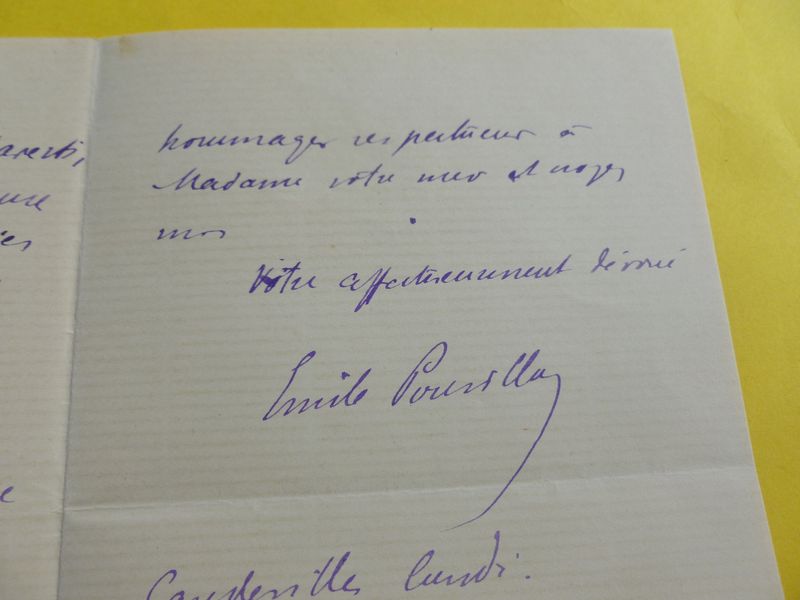 hommages respectueux à
Madame votre mère et croyez
moi
Votre affectueusement dévoué
Emile Pouvillon
lundi.